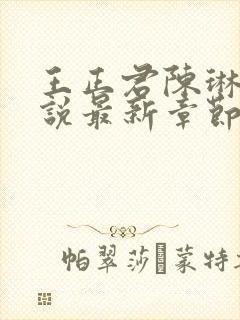 王正君陳琳
說最新章節
帕翠莎 蒙特